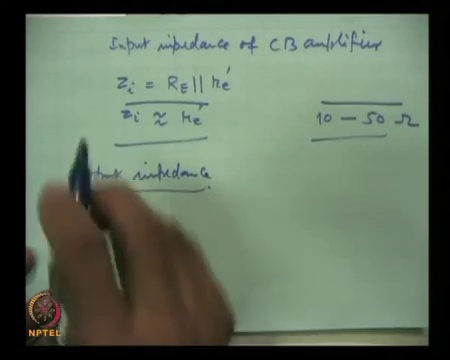 Input impedance of CB amplifier
Zi = RE || re'
Zi ≈ re'
10 — 50 Ω
impedance
NPTEL